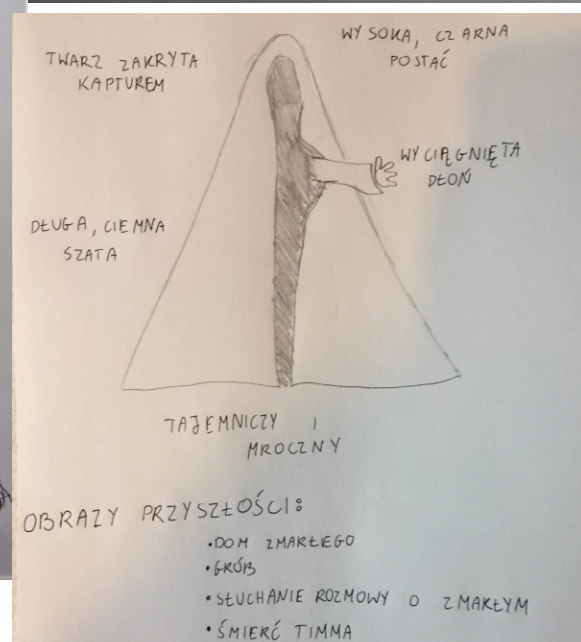 TWARZ ZAKRYTA
KAPTUREM
WYSOKA, CZARNA
POSTAĆ
WYCIĄGNIĘTA
DŁOŃ
DŁUGA, CIEMNA
SZATA
TAJEMNICZY I
MROCZNY
OBRAZY PRZYSZŁOŚCI:
•DOM ZMARŁEGO
•GRÓB
•SŁUCHANIE ROZMOWY O ZMARŁYM
•ŚMIERĆ TIMMA